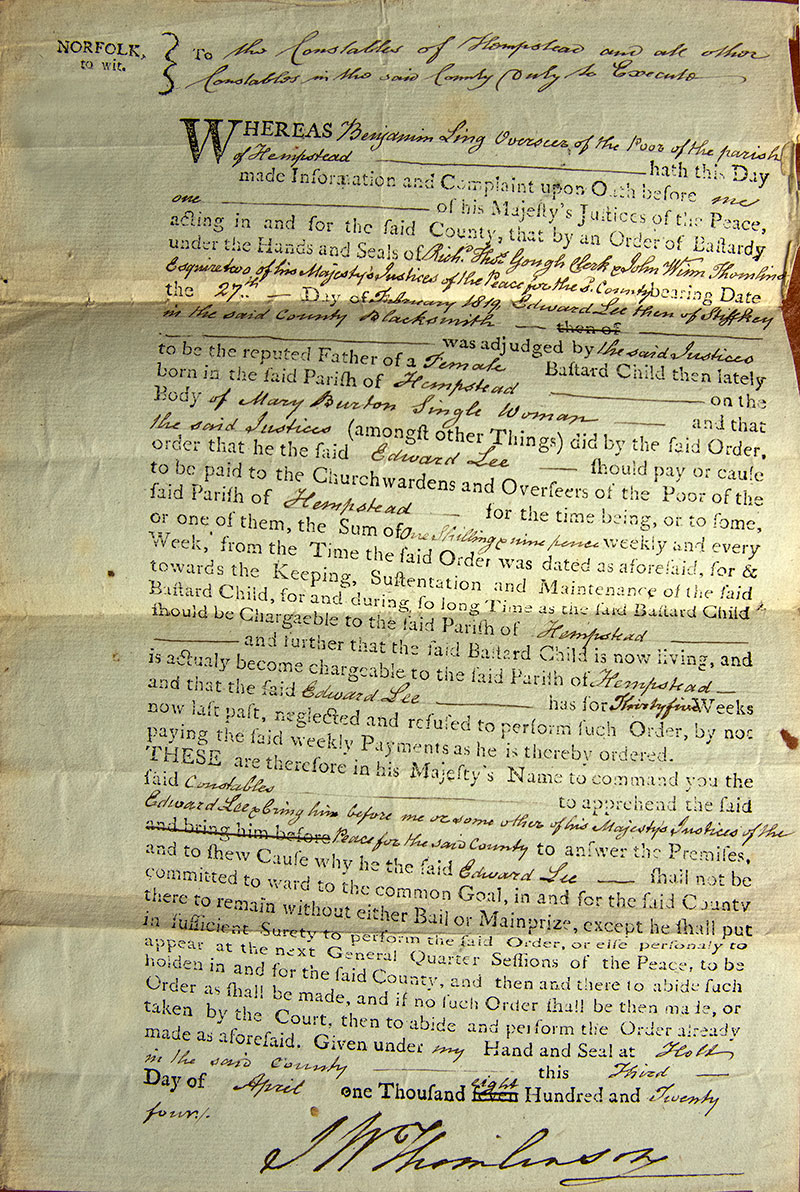 NORFOLK,
to wit.
To the Constables of Hempstead and all other
Constables in the said County Duly to Execute
WHEREAS Benjamin Ling Overseer of the Poor of the parish
of Hempstead hath this Day
made Information and Complaint upon Oath before me
one of his Majeſty's Juſtices of the Peace,
acting in and for the ſaid County, that by an Order of Baſtardy
under the Hands and Seals of Richd. Thos. Gough Clerk & John Winn Thomlinson
Esquire two of his Majesty's Justices of the Peace for the sd. County bearing Date
the 27th. — Day of February 1819 Edward Lee then of Stiffkey
in the said County Blacksmith — then of
was adjudged by the said Justices
to be the reputed Father of a Female Baſtard Child then lately
born in the ſaid Pariſh of Hempstead on the
Body of Mary Burton Single Woman — and that
the said Justices (amongſt other Things) did by the ſaid Order,
order that he the ſaid Edward Lee — ſhould pay or cauſe
to be paid to the Churchwardens and Overſeers of the Poor of the
ſaid Pariſh of Hempstead — for the time being, or to ſome,
or one of them, the Sum of One Shilling & nine pence weekly and every
Week, from the Time the ſaid Order was dated as aforeſaid, for &
towards the Keeping, Suſtentation and Maintenance of the ſaid
Baſtard Child, for and during ſo long Time as the ſaid Baſtard Child
ſhould be Chargaeble to the ſaid Pariſh of Hempstead
and further that the ſaid Baſtard Child is now living, and
is actualy become chargeable to the ſaid Pariſh of Hempstead —
and that the ſaid Edward Lee has for Thirty five Weeks
now laſt paſt, neglected and refuſed to perform ſuch Order, by not
paying the ſaid weekly Payments as he is thereby ordered.
THESE are therefore in his Majeſty's Name to command you the
ſaid Constables to apprehend the ſaid
Edward Lee & bring him before me or some other of his Majestys Justices of the
and bring him before Peace for the said County to anſwer the Premiſes,
and to ſhew Cauſe why he the ſaid Edward Lee — ſhall not be
committed to ward to the common Goal, in and for the ſaid County
there to remain without either Bail or Mainprize, except he ſhall put
in ſufficient Surety to perform the ſaid Order, or elſe perſonaly to
appear at the next General Quarter Seſſions of the Peace, to be
holden in and for the ſaid County, and then and there to abide ſuch
Order as ſhall be made, and if no ſuch Order ſhall be then made, or
taken by the Court, then to abide and perform the Order already
made as aforeſaid. Given under my Hand and Seal at Holt
in the said County this Third —
Day of April one Thouſand ſeven eight Hundred and Twenty
four/.
J W Thomlinson